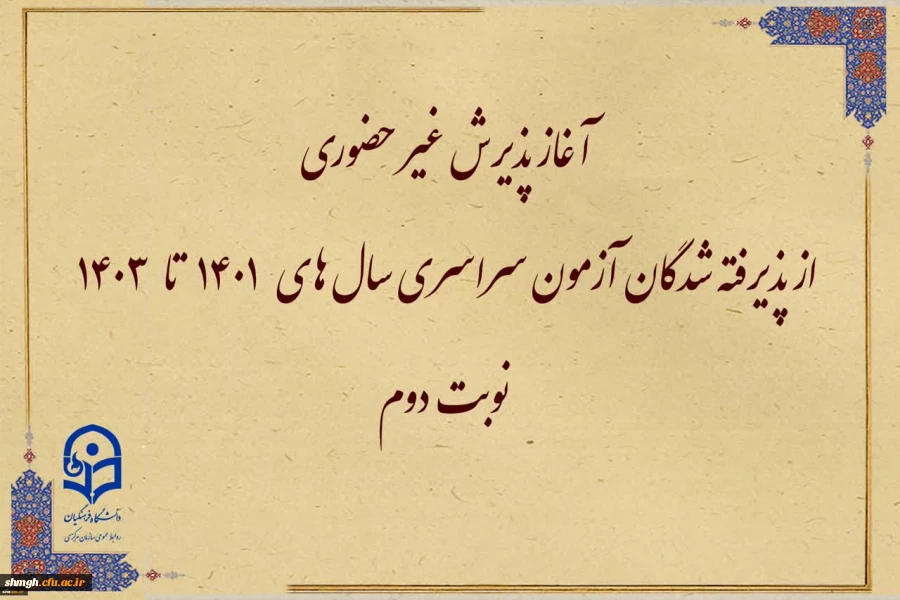 آغاز پذیرش غیر حضوری
از پذیرفته شدگان آزمون سراسری سال های ۱۴۰۱ تا ۱۴۰۳
نوبت دوم
دانشگاه فرهنگیان
روابط عمومی سازمان مرکزی
shmgh.cfu.ac.ir